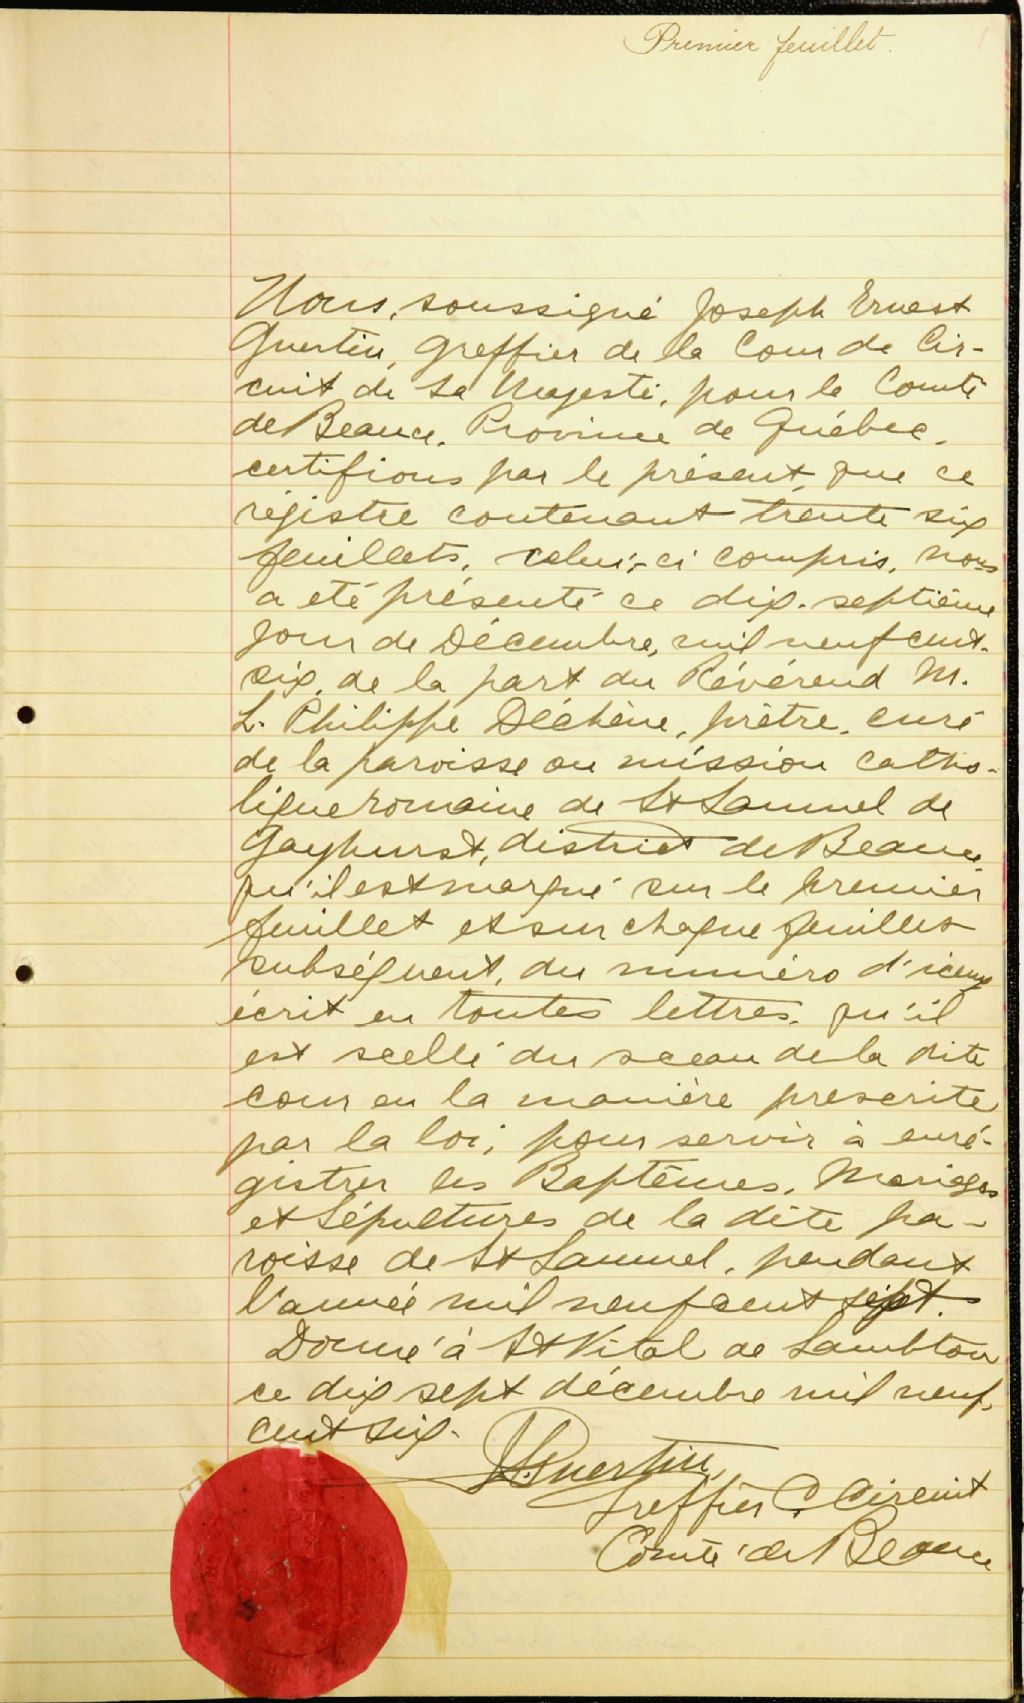 Premier feuillet.
Nous, soussigné Joseph Ernest
Guertin, Greffier de la Cour de Cir-
cuit de Sa Majesté, pour le Comté
de Beauce, Province de Québec,
certifions par le présent, que ce
régistre contenant trente six
feuillets, celui-ci compris, nous
a été présenté ce dix-septième
jour de Décembre, mil neuf cent
six, de la part du Révérend M.
L. Philippe Déchène, prêtre, curé
de la paroisse ou mission catho-
lique romaine de St Samuel de
Gayhurst, district de Beauce
qu'il est marqué sur le premier
feuillet et sur chaque feuillet
subséquent, du numéro d'iceux
écrit en toutes lettres, qu'il
est scellé du sceau de la dite
cour en la manière prescrite
par la loi; pour servir à enré-
gistrer les Baptêmes, Mariages
et Sépultures de la dite pa-
roisse de St Samuel, pendant
l'année mil neuf cent sept.
Donné à St Vital de Lambton
ce dix sept décembre mil neuf
cent six.
Guertin,
Greffier C. Circuit
Comté de Beauce